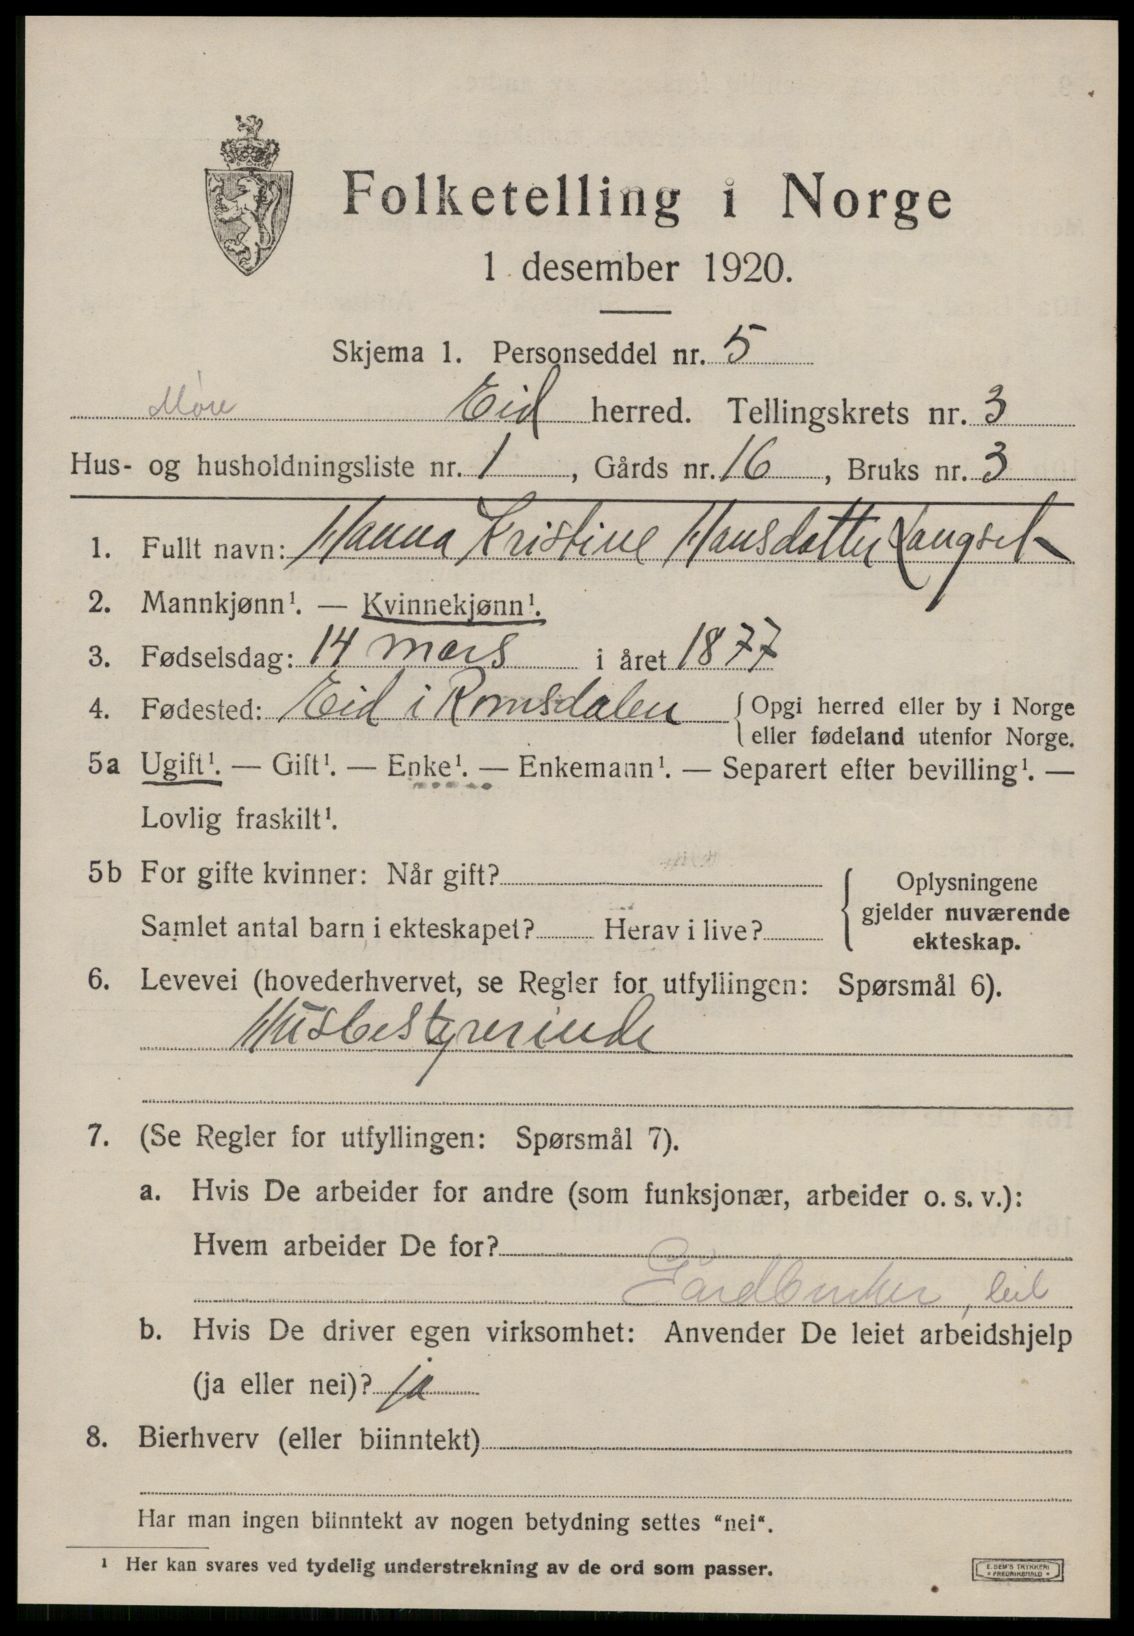 Folketelling i Norge
1 desember 1920.
Skjema 1. Personseddel nr. 5
Møre Eid herred. Tellingskrets nr. 3
Hus- og husholdningsliste nr. 1, Gårds nr. 16, Bruks nr. 3
1. Fullt navn: Hanna Kristine Hansdatter Langset
2. Mannkjønn¹. — Kvinnekjønn¹.
3. Fødselsdag: 14 mars i året 1877
4. Fødested: Eid i Romsdalen { Opgi herred eller by i Norge
eller fødeland utenfor Norge.
5a Ugift¹. — Gift¹. — Enke¹. — Enkemann¹. — Separert efter bevilling¹. —
Lovlig fraskilt¹.
5b For gifte kvinner: Når gift?
Samlet antal barn i ekteskapet? Herav i live?
{ Oplysningene
gjelder nuværende
ekteskap.
6. Levevei (hovederhvervet, se Regler for utfyllingen: Spørsmål 6).
Husbestyrerinde
7. (Se Regler for utfyllingen: Spørsmål 7).
a. Hvis De arbeider for andre (som funksjonær, arbeider o. s. v.):
Hvem arbeider De for?
Gårdbruker,
b. Hvis De driver egen virksomhet: Anvender De leiet arbeidshjelp
(ja eller nei)? ja
8. Bierhverv (eller biinntekt)
Har man ingen biinntekt av nogen betydning settes "nei".
¹ Her kan svares ved tydelig understrekning av de ord som passer.
E. SEM'S TRYKKERI
FREDRIKSHALD